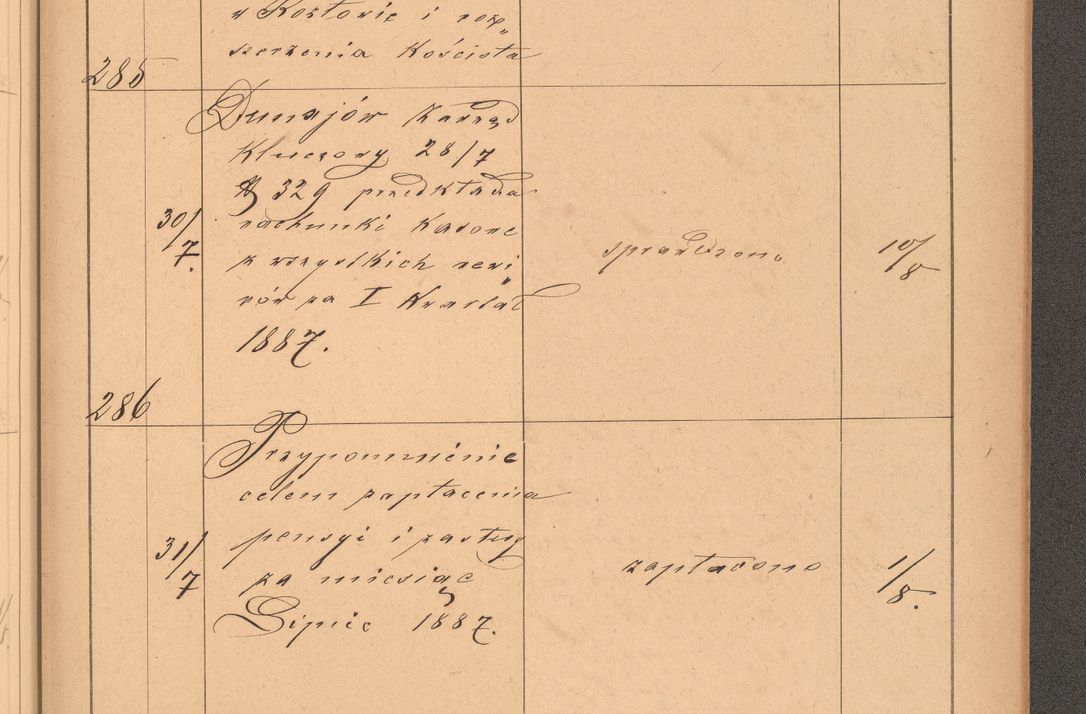 w Kozłowie i roz„
szerzenia Kościoła
285
Dunajów Zarząd
Kluczowy 28/7
N 329 przedkłada
30/7. rachunki Kasowe
z wszystkich rewi„
rów za I Kwartał
1887.
sprawdzono
10/8
286
Przypomnienie
celem zapłacenia
pensyi i zasług
31/7 za miesiąc
Lipiec 1887.
zapłacono
1/8.